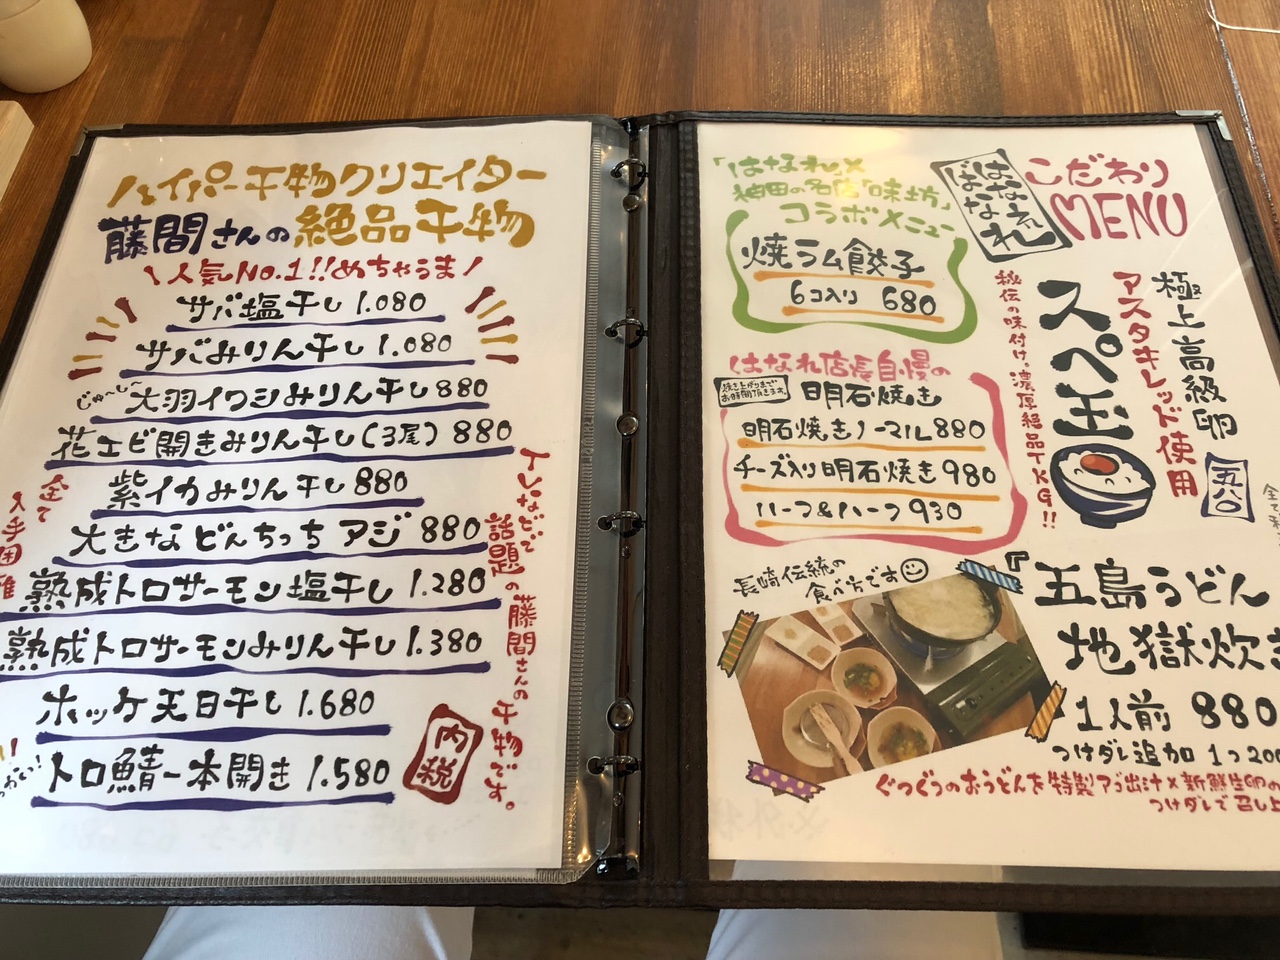 ハイパー干物クリエイター
藤間さんの絶品干物
\人気No.1!!めちゃうま/
サバ塩干し 1.080
サバみりん干し 1.080
じゅ〜し〜 大羽イワシみりん干し 880
花エビ開きみりん干し(3尾) 880
紫イカみりん干し 880
大きなどんちっちアジ 880
熟成トロサーモン塩干し 1.280
熟成トロサーモンみりん干し 1.380
ホッケ天日干し 1.680
トロ鯖一本開き 1.580
全て
入手困難
TVなどで
話題の藤間さんの干物です。
内税
「はなれ×
神田の名店「味坊」
コラボメニュー
焼ラム餃子
6コ入り 680
はなれ店長自慢の
焼き上がりまで
お時間頂きます。
明石焼き
明石焼きノーマル 880
チーズ入り明石焼き 980
ハーフ&ハーフ 930
はなれ
ばなれ
こだわり
MENU
極上高級卵
アスタキレッド使用
スペ玉
秘伝の味付け。濃厚絶品TKG!!
五八〇
長崎伝統の
食べ方です
『五島うどん
地獄炊き
1人前 880
つけダレ追加 1つ200
ぐつぐつのおうどんを特製アゴ出汁×新鮮生卵の
つけダレで召し上